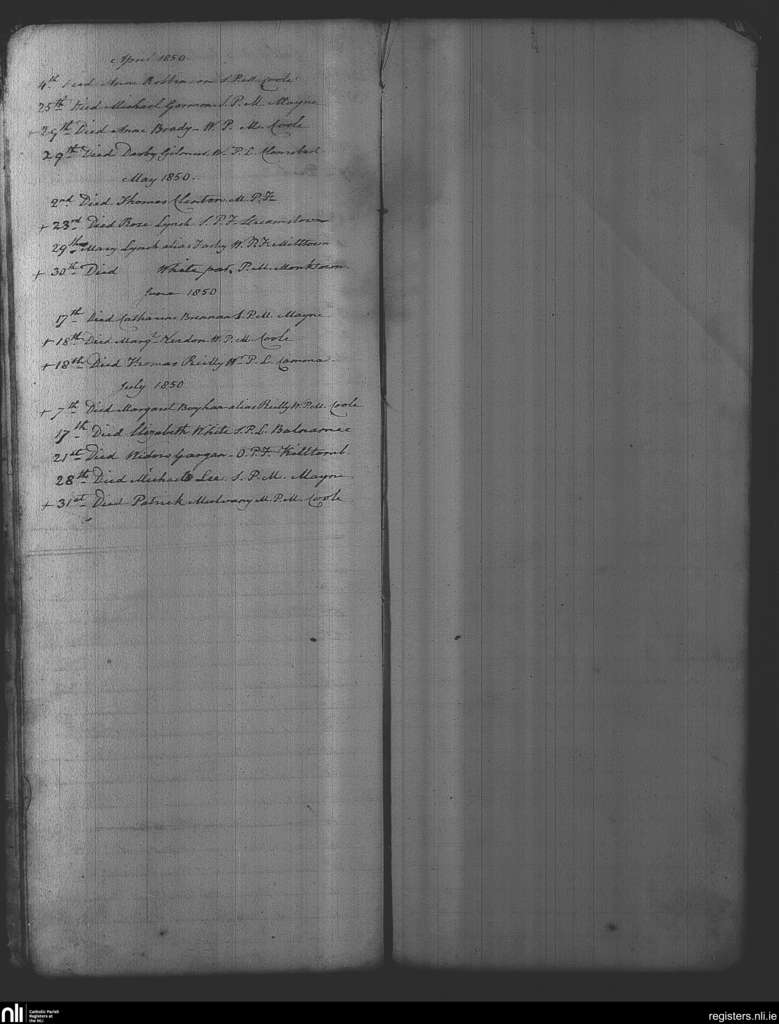 April 1850
4th Died Anne S.P.M. Coole
25th Died Michael S.P.M. Mayne
+ 29th Died Anne Brady W.P.M. Coole
29th Died Darby W.P.L.
May 1850.
2nd Died Thomas Clinton M.P.F.
+ 23rd Died Rose Lynch S.P.F.
29th Mary Lynch alias W.P.F. Milltown
+ 30th Died White P.M. Monktown
June 1850
17th Died Catharine Brennan S.P.M. Mayne
+ 18th Died Margt. W.P.M. Coole
+ 18th Died Thomas Reilly W.P.L.
July 1850
+ 7th Died Margaret alias Reilly W.P.M. Coole
17th Died Elizabeth White S.P.L.
21st Died Gargan O.P.F.
28th Died Michael Lee S.P.M. Mayne
+ 31st Died Patrick M.P.M. Coole
nli Catholic Parish
Registers at
the NLI
registers.nli.ie